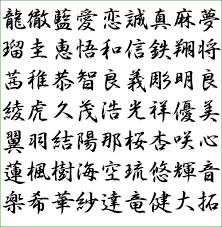 龍徹藍愛恋誠真麻夢
瑠圭恵悟和信鉄翔将
茜稚恭智良義彫明良
綾虎久茂浩光祥優美
翼羽結陽那桜杏咲心
蓮楓樹海空琉悠輝音
楽希華紗達竜健大拓